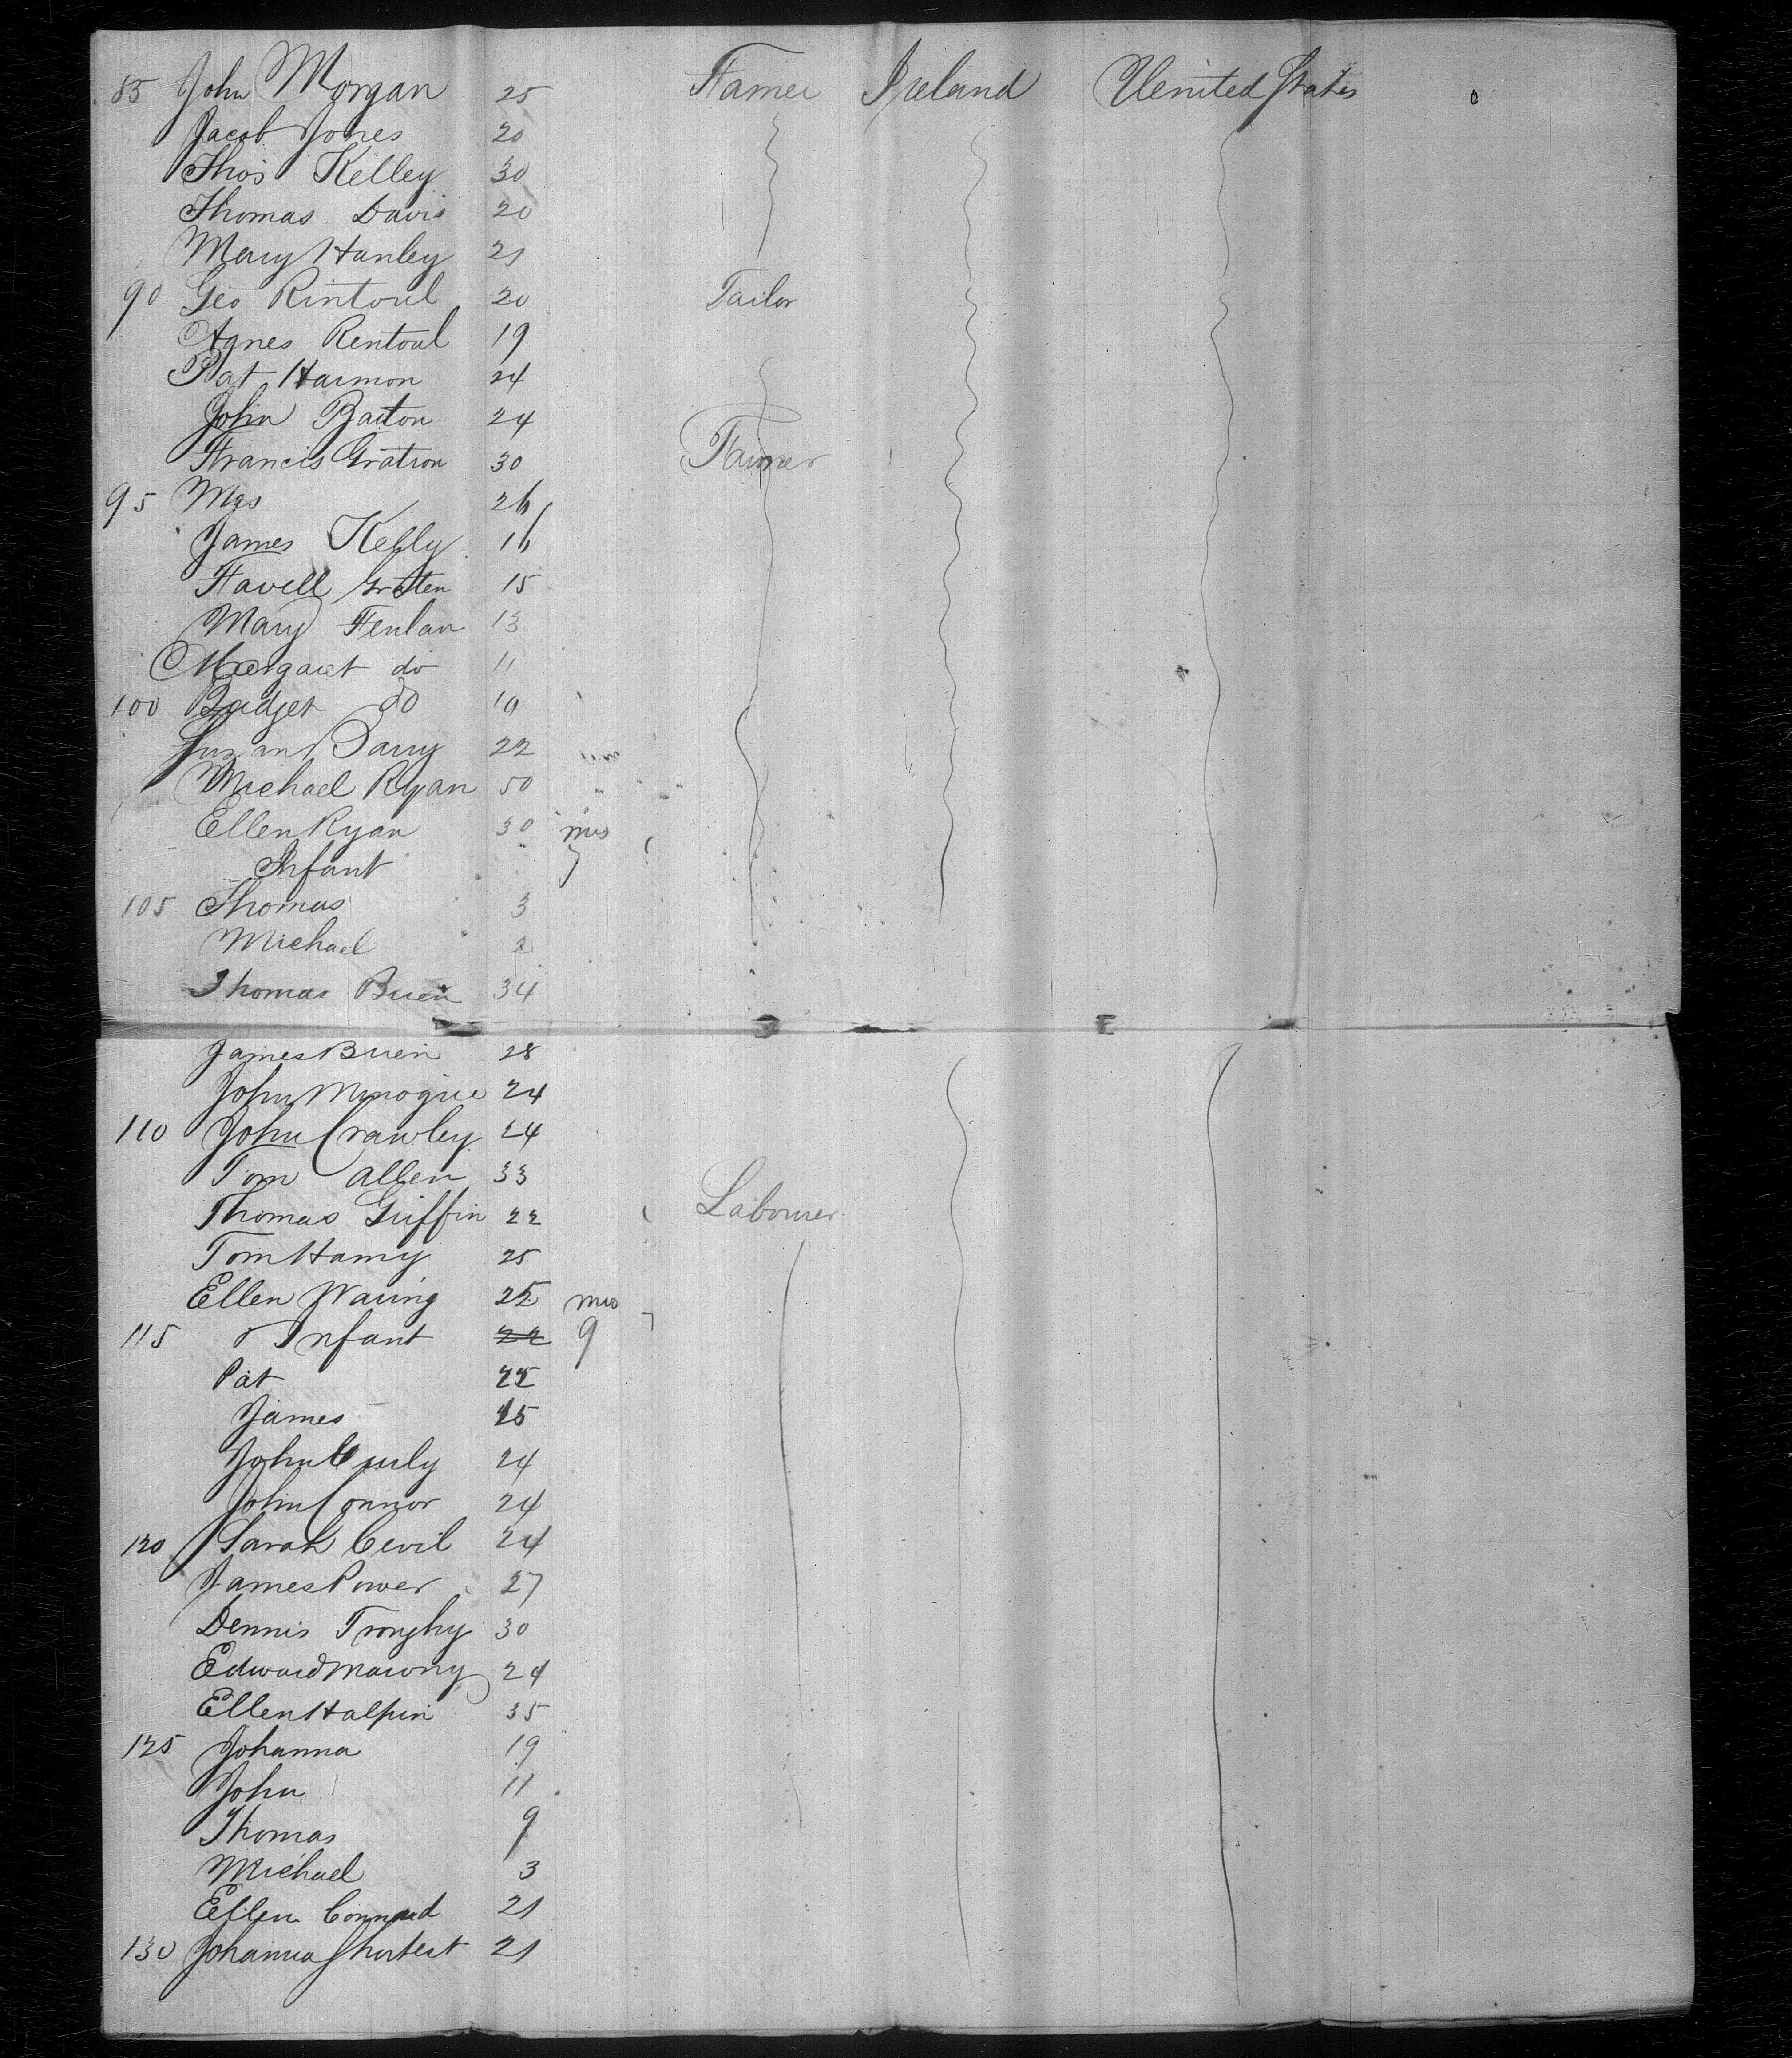 85 John Morgan 25 Farmer Ireland United States
Jacob Jones 20
Thos Kelley 30
Thomas Davis 20
Mary Hanley 21
90 Geo Rintoul 20 Tailor
Agnes Rentoul 19
Pat Harmon 24
John Barton 24
Francis Gration 30 Farmer
95 Mrs 26
James Kelly 16
15
Mary Fenlan 13
Margaret do 11
100 Bridget do 10
Barry 22
Michael Ryan 50
Ellen Ryan 30 mos
Infant 7
105 Thomas 3
Michael 2
Thomas Buen 34
James Buen 28
John Minogue 24
110 John Crawley 24
Tom Allen 33
Thomas Griffin 22 Labourer
Tom Harny 25
Ellen Waring 25 mos
115 Infant 22 9
Pat 25
James 15
John 24
John Connor 24
120 Sarah Cevil 24
James Power 27
Dennis 30
Edward 24
Ellen Halpin 35
125 Johanna 19
John 11
Thomas 9
Michael 3
Ellen 21
130 Johanna 21